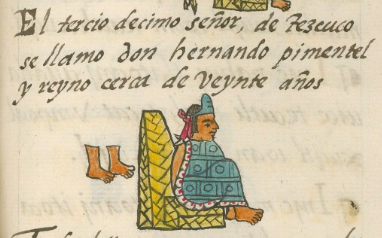 El tercio decimo señor, de tezcuco
se llamo don hernando pimentel
y reyno cerca de veynte años